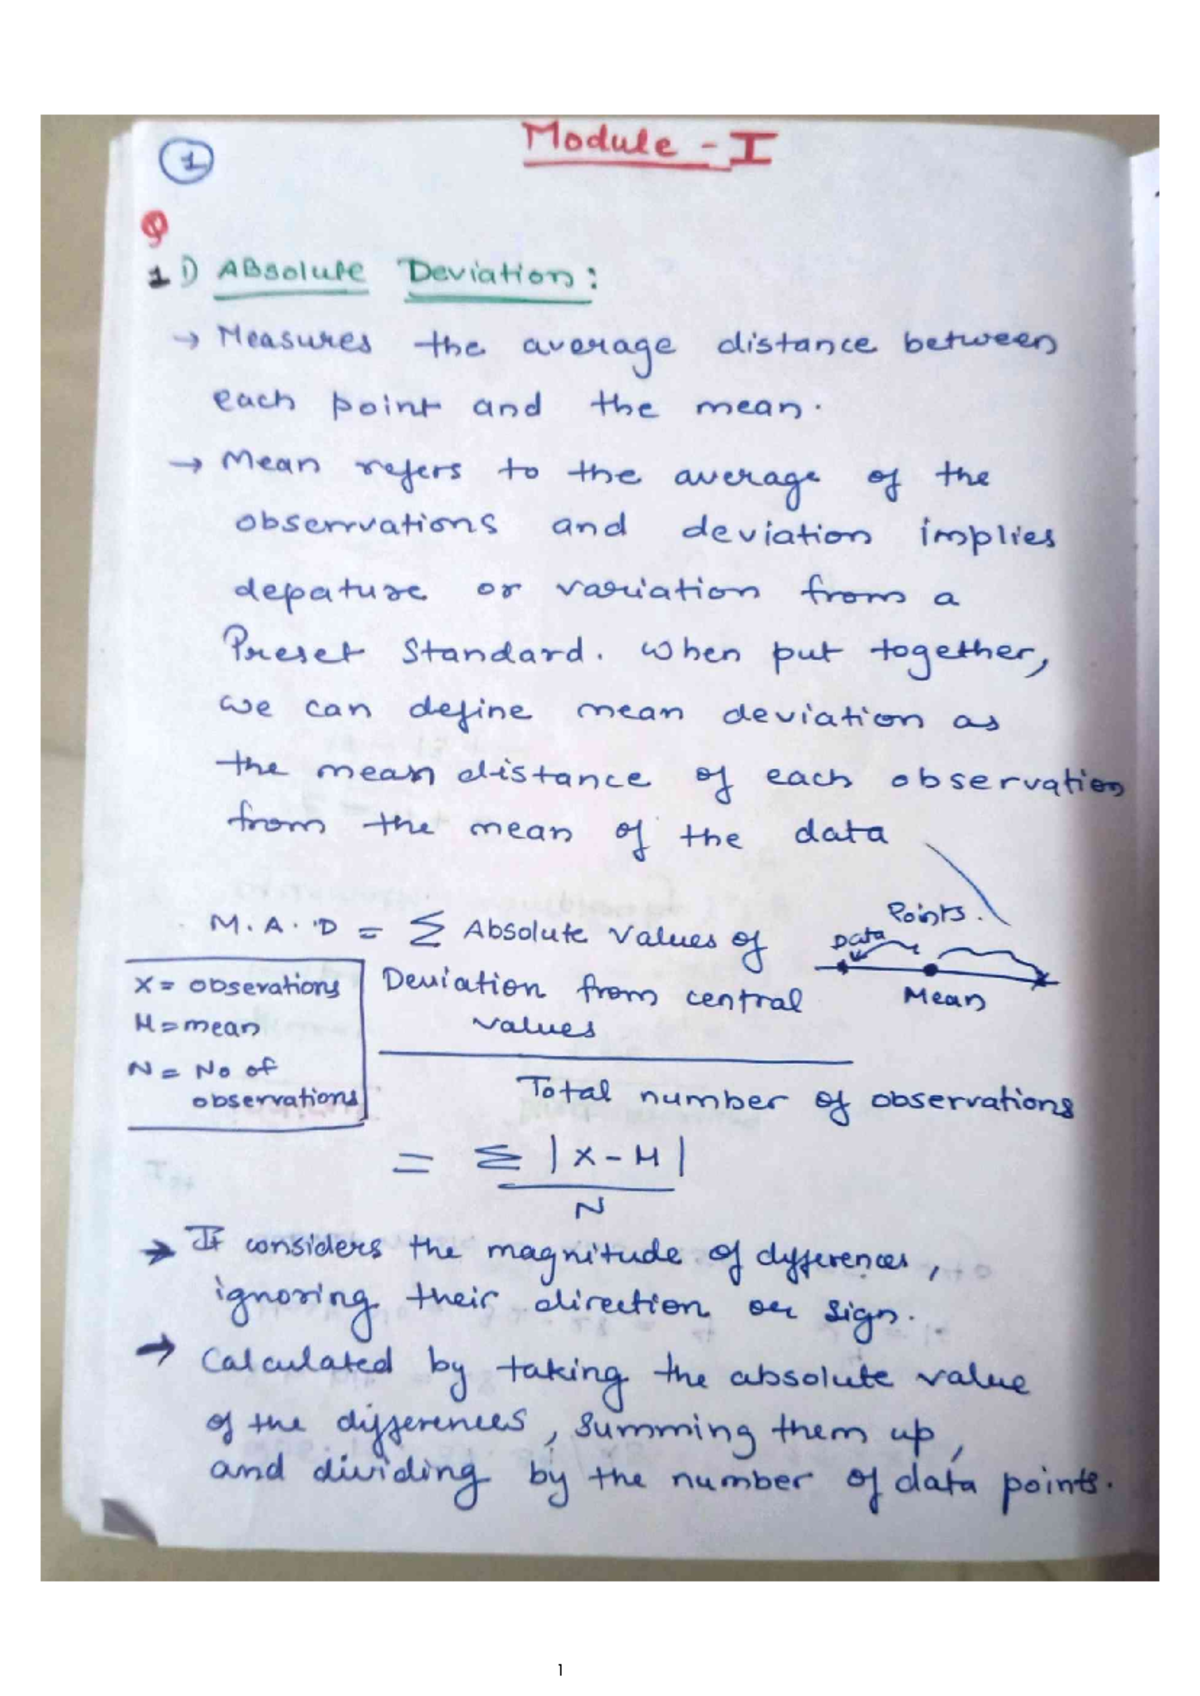 Module - I
1
Q
1 i) Absolute Deviation:
→ Measures the average distance between
each point and the mean.
→ Mean refers to the average of the
obserrvations and deviation implies
depature or variation from a
Preset Standard. When put together,
we can define mean deviation as
the mean distance of each observation
from the mean of the data
M.A.D = Σ Absolute Values of
Deviation from central
values
Total number of observations
X = obserations
M = mean
N = No of
observations
Points.
Data
Mean
= Σ |X - M|
N
→ It considers the magnitude of differences,
ignoring their direction or sign.
→ Calculated by taking the absolute value
of the differences, summing them up,
and dividing by the number of data points.
1